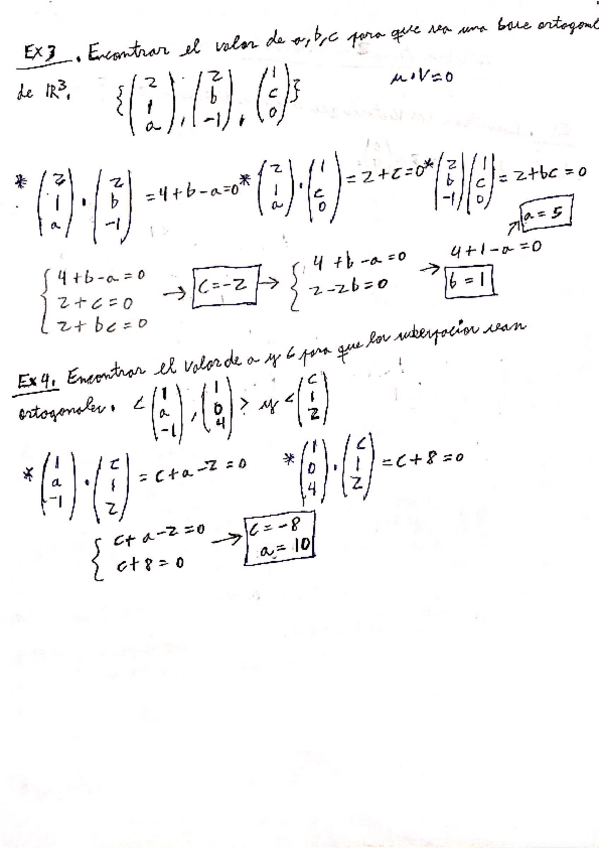 Ex 3. Encontrar el valor de a, b, c para que sea una base ortogonal
de IR³. {(2 1 a), (2 b -1), (1 c 0)} u·v=0
* (2 1 a) · (2 b -1) = 4+b-a=0 * (2 1 a) · (1 c 0) = 2+c=0 * (2 b -1) (1 c 0) = 2+bc=0
{ 4+b-a=0 2+c=0 2+bc=0 → c=-2 → { 4+b-a=0 2-2b=0 → b=1 4+1-a=0 ↗ a=5
Ex 4. Encontrar el valor de a y c para que los subespacios sean
ortogonales. <(1 a -1), (1 0 4)> y <(c 1 2)
* (1 a -1) · (c 1 2) = c+a-2=0 * (1 0 4) · (c 1 2) = c+8=0
{ c+a-2=0 c+8=0 → c=-8 a=10